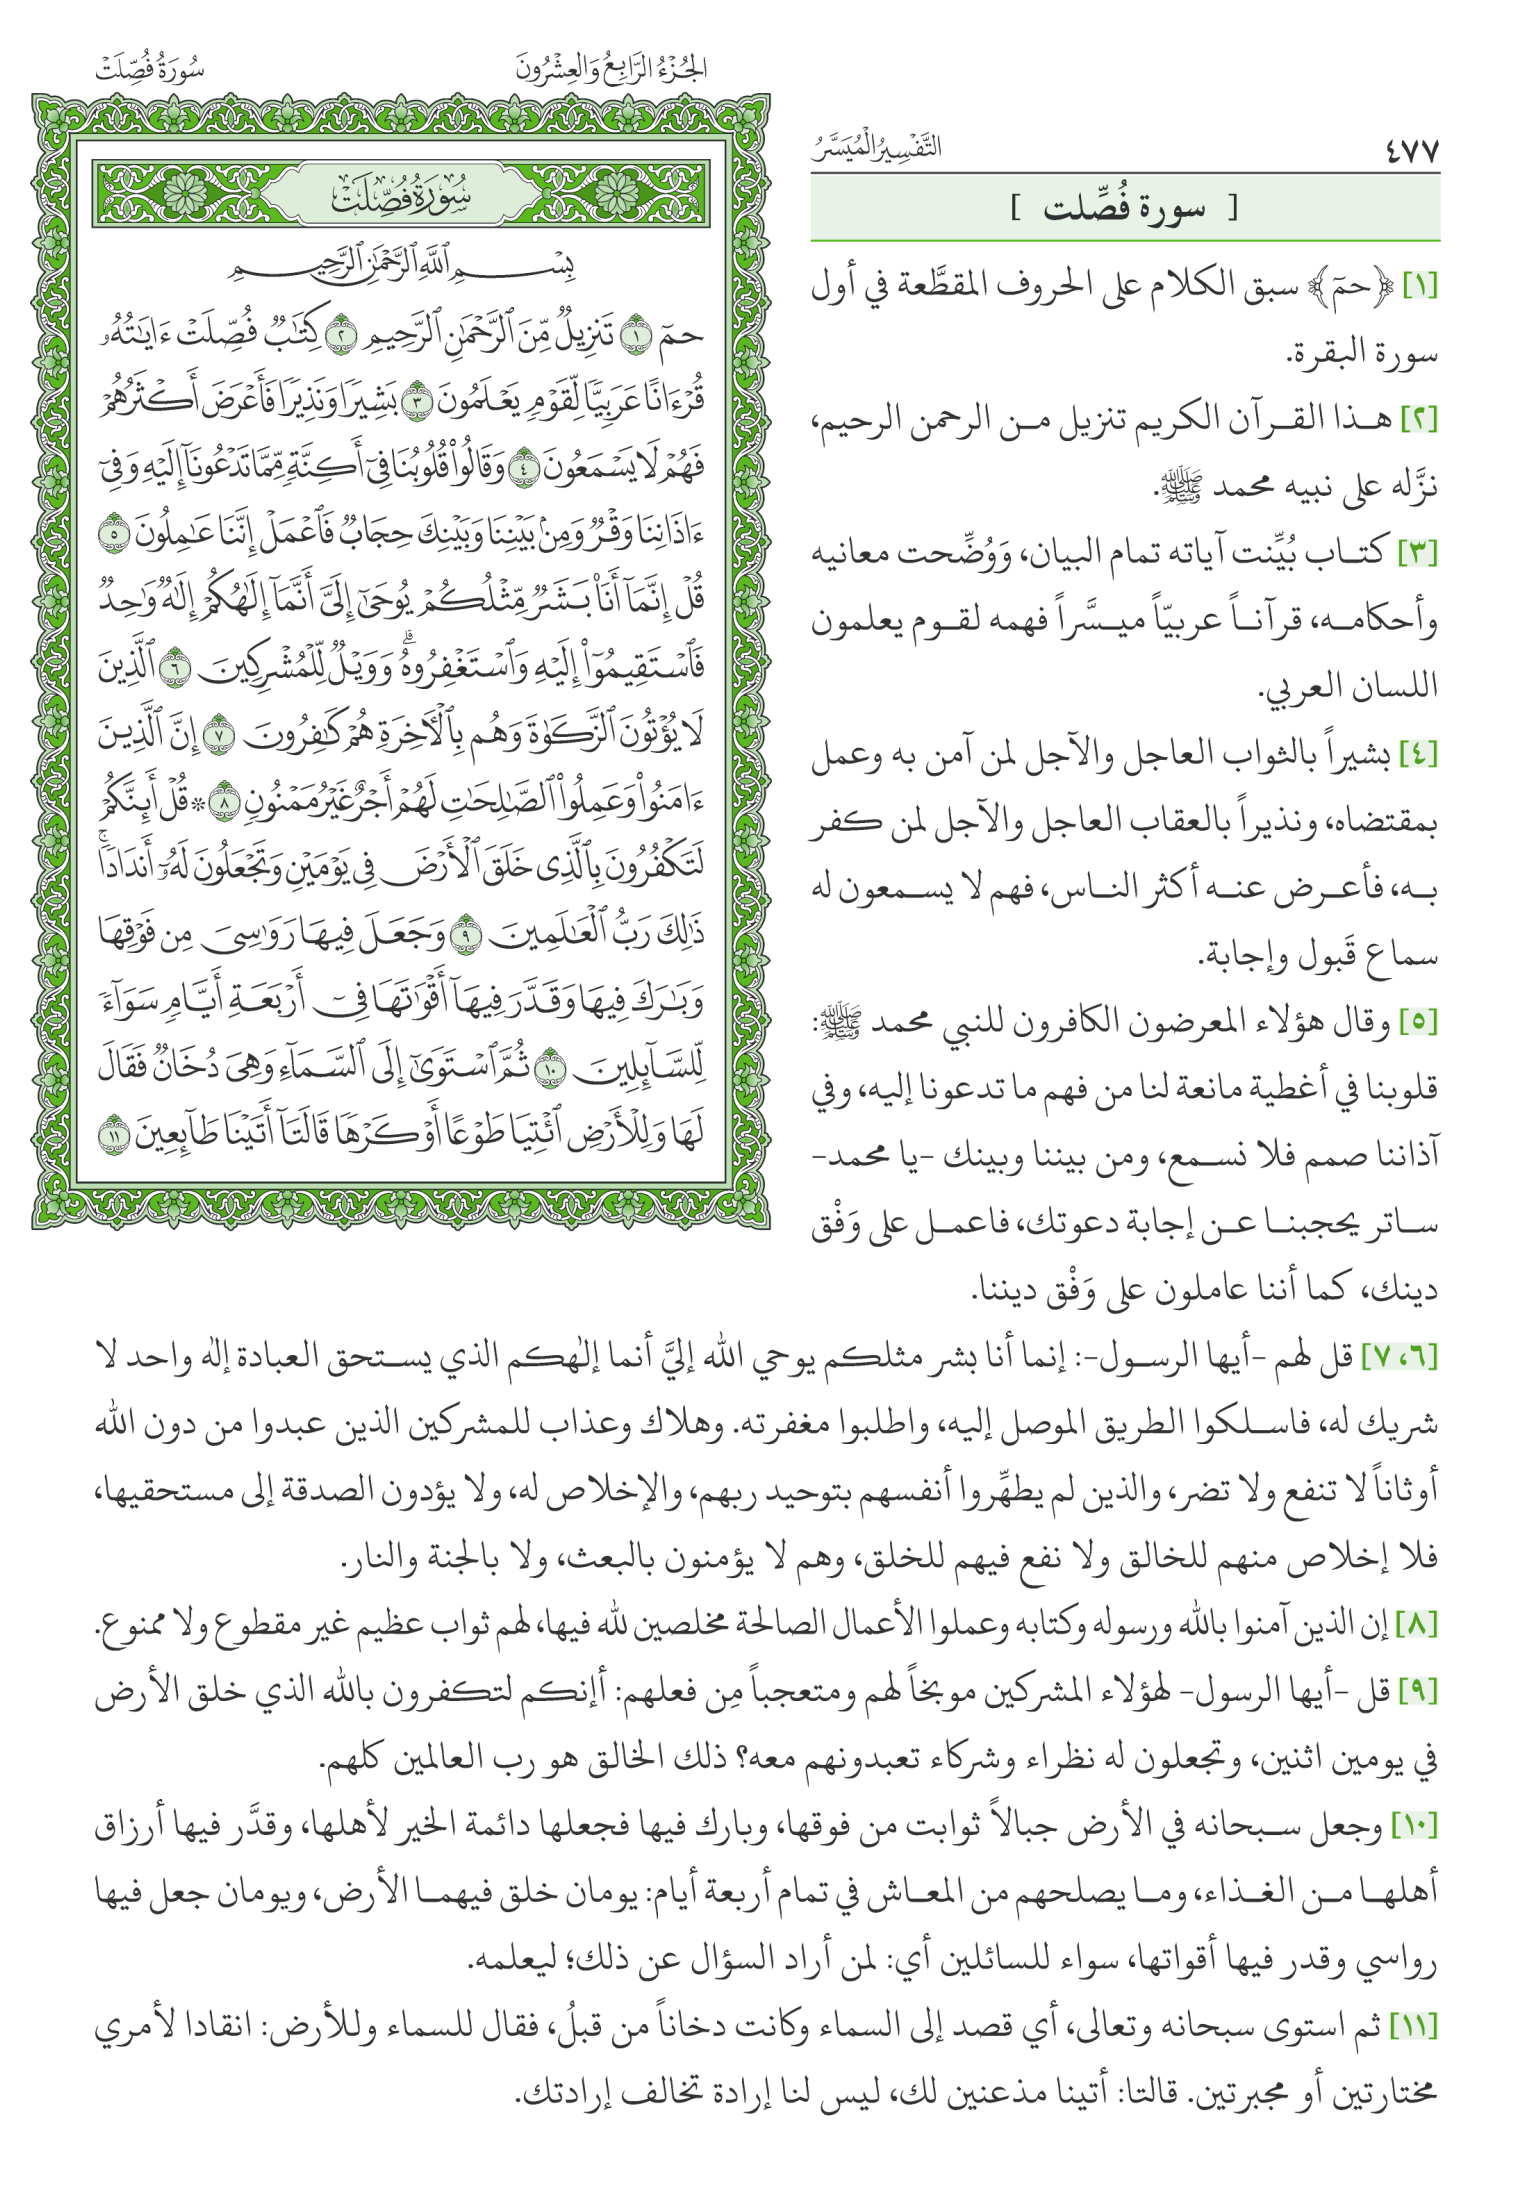 الجُزْءُ الرَّابِعُ وَالعِشْرُونَ
سُورَةُ فُصِّلَتْ
سُورَةُ فُصِّلَتْ
بِسْمِ ٱللَّهِ ٱلرَّحْمَٰنِ ٱلرَّحِيمِ
حمٓ ١ تَنزِيلٌ مِّنَ ٱلرَّحْمَٰنِ ٱلرَّحِيمِ ٢ كِتَٰبٌ فُصِّلَتْ ءَايَٰتُهُۥ
قُرْءَانًا عَرَبِيًّا لِّقَوْمٍ يَعْلَمُونَ ٣ بَشِيرًا وَنَذِيرًا فَأَعْرَضَ أَكْثَرُهُمْ
فَهُمْ لَا يَسْمَعُونَ ٤ وَقَالُوا۟ قُلُوبُنَا فِىٓ أَكِنَّةٍ مِّمَّا تَدْعُونَآ إِلَيْهِ وَفِىٓ
ءَاذَانِنَا وَقْرٌ وَمِنۢ بَيْنِنَا وَبَيْنِكَ حِجَابٌ فَٱعْمَلْ إِنَّنَا عَٰمِلُونَ ٥
قُلْ إِنَّمَآ أَنَا۠ بَشَرٌ مِّثْلُكُمْ يُوحَىٰٓ إِلَىَّ أَنَّمَآ إِلَٰهُكُمْ إِلَٰهٌ وَٰحِدٌ
فَٱسْتَقِيمُوٓا۟ إِلَيْهِ وَٱسْتَغْفِرُوهُ ۗ وَوَيْلٌ لِّلْمُشْرِكِينَ ٦ ٱلَّذِينَ
لَا يُؤْتُونَ ٱلزَّكَوٰةَ وَهُم بِٱلْأَخِرَةِ هُمْ كَٰفِرُونَ ٧ إِنَّ ٱلَّذِينَ
ءَامَنُوا۟ وَعَمِلُوا۟ ٱلصَّٰلِحَٰتِ لَهُمْ أَجْرٌ غَيْرُ مَمْنُونٍ ٨ ۞ قُلْ أَئِنَّكُمْ
لَتَكْفُرُونَ بِٱلَّذِى خَلَقَ ٱلْأَرْضَ فِى يَوْمَيْنِ وَتَجْعَلُونَ لَهُۥٓ أَندَادًا ۚ
ذَٰلِكَ رَبُّ ٱلْعَٰلَمِينَ ٩ وَجَعَلَ فِيهَا رَوَٰسِىَ مِن فَوْقِهَا
وَبَٰرَكَ فِيهَا وَقَدَّرَ فِيهَآ أَقْوَٰتَهَا فِىٓ أَرْبَعَةِ أَيَّامٍ سَوَآءً
لِّلسَّآئِلِينَ ١٠ ثُمَّ ٱسْتَوَىٰٓ إِلَى ٱلسَّمَآءِ وَهِىَ دُخَانٌ فَقَالَ
لَهَا وَلِلْأَرْضِ ٱئْتِيَا طَوْعًا أَوْ كَرْهًا قَالَتَآ أَتَيْنَا طَآئِعِينَ ١١
٤٧٧
التَّفْسِيرُ الْمُيَسَّرُ
[ سورة فُصِّلت ]
[١] ﴿حمٓ﴾ سبق الكلام على الحروف المقطَّعة في أول
سورة البقرة.
[٢] هذا القرآن الكريم تنزيل من الرحمن الرحيم،
نزَّله على نبيه محمد ﷺ.
[٣] كتاب بُيِّنت آياته تمام البيان، وَوُضِّحت معانيه
وأحكامه، قرآناً عربيّاً ميسَّراً فهمه لقوم يعلمون
اللسان العربي.
[٤] بشيراً بالثواب العاجل والآجل لمن آمن به وعمل
بمقتضاه، ونذيراً بالعقاب العاجل والآجل لمن كفر
به، فأعرض عنه أكثر الناس، فهم لا يسمعون له
سماع قَبول وإجابة.
[٥] وقال هؤلاء المعرضون الكافرون للنبي محمد ﷺ:
قلوبنا في أغطية مانعة لنا من فهم ما تدعونا إليه، وفي
آذاننا صمم فلا نسمع، ومن بيننا وبينك -يا محمد-
ساتر يحجبنا عن إجابة دعوتك، فاعمل على وَفْق
دينك، كما أننا عاملون على وَفْق ديننا.
[٦، ٧] قل لهم -أيها الرسول-: إنما أنا بشر مثلكم يوحي الله إليَّ أنما إلٰهكم الذي يستحق العبادة إلٰه واحد لا
شريك له، فاسلكوا الطريق الموصل إليه، واطلبوا مغفرته. وهلاك وعذاب للمشركين الذين عبدوا من دون الله
أوثاناً لا تنفع ولا تضر، والذين لم يطهِّروا أنفسهم بتوحيد ربهم، والإخلاص له، ولا يؤدون الصدقة إلى مستحقيها،
فلا إخلاص منهم للخالق ولا نفع فيهم للخلق، وهم لا يؤمنون بالبعث، ولا بالجنة والنار.
[٨] إن الذين آمنوا بالله ورسوله وكتابه وعملوا الأعمال الصالحة مخلصين لله فيها، لهم ثواب عظيم غير مقطوع ولا ممنوع.
[٩] قل -أيها الرسول- لهؤلاء المشركين موبخاً لهم ومتعجباً مِن فعلهم: أإنكم لتكفرون بالله الذي خلق الأرض
في يومين اثنين، وتجعلون له نظراء وشركاء تعبدونهم معه؟ ذلك الخالق هو رب العالمين كلهم.
[١٠] وجعل سبحانه في الأرض جبالاً ثوابت من فوقها، وبارك فيها فجعلها دائمة الخير لأهلها، وقدَّر فيها أرزاق
أهلها من الغذاء، وما يصلحهم من المعاش في تمام أربعة أيام: يومان خلق فيهما الأرض، ويومان جعل فيها
رواسي وقدر فيها أقواتها، سواء للسائلين أي: لمن أراد السؤال عن ذلك؛ ليعلمه.
[١١] ثم استوى سبحانه وتعالى، أي قصد إلى السماء وكانت دخاناً من قبلُ، فقال للسماء وللأرض: انقادا لأمري
مختارتين أو مجبرتين. قالتا: أتينا مذعنين لك، ليس لنا إرادة تخالف إرادتك.